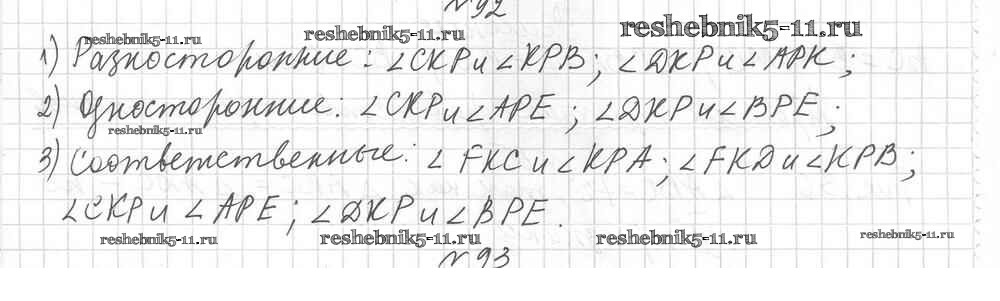 №92
reshebnik5-11.ru reshebnik5-11.ru reshebnik5-11.ru
1) Разносторонние: ∠CKP и ∠KPB; ∠DKP и ∠APK;
2) Односторонние: ∠CKP и ∠APE; ∠DKP и ∠BPE;
reshebnik5-11.ru reshebnik5-11.ru
3) Соответственные: ∠FKC и ∠KPA; ∠FKD и ∠KPB;
∠CKP и ∠APE; ∠DKP и ∠BPE.
reshebnik5-11.ru reshebnik5-11.ru reshebnik5-11.ru reshebnik5-11.ru
№93